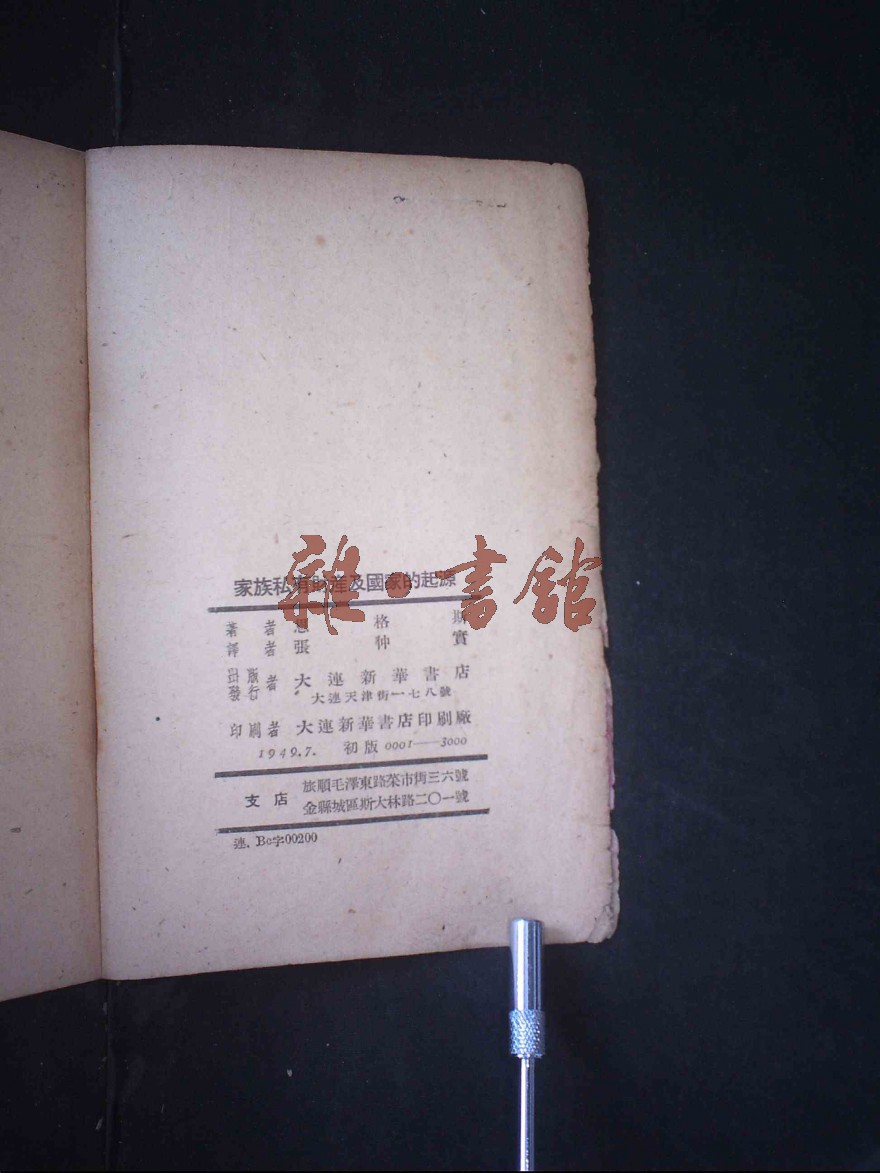 家族私有財産及國家的起源
雜·書館
著者 恩格斯
譯者 張仲實
出版發行者 大連新華書店
大連天津街一七八號
印刷者 大連新華書店印刷廠
1949.7. 初版 0001—3000
支店 旅順毛澤東路菜市街三六號
金縣城區斯大林路二〇一號
連. Bc字00200